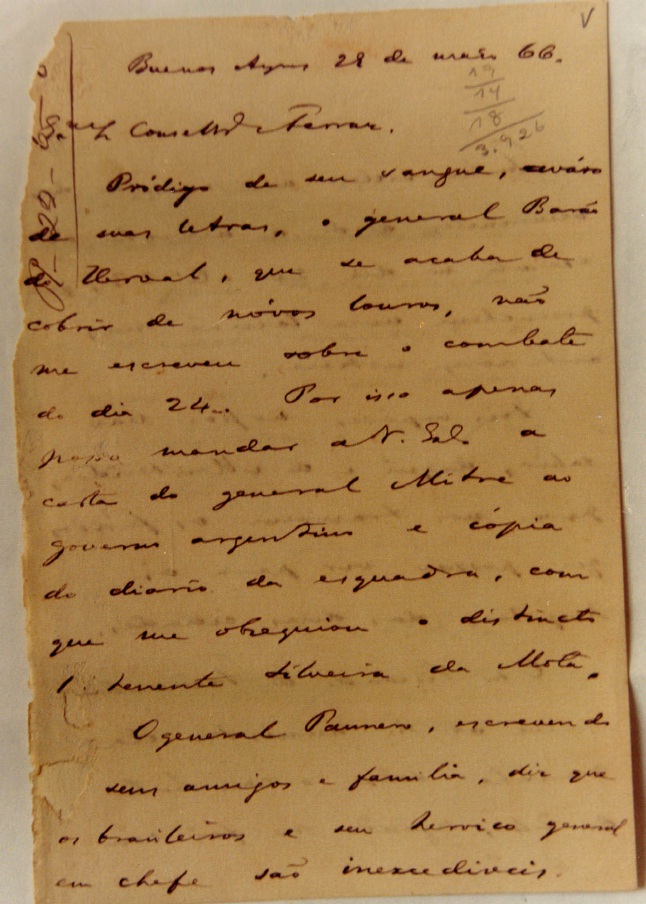 V
Buenos Ayres 28 de maio 66.
19
14
18
3.926
Consellrº Ferraz.
Pródigo de seu sangue, avaro
de suas letras, o general Barão
do Herval, que se acaba de
cobrir de nóvos louros, não
me escreveu sobre o combate
do dia 24. Por isso apenas
posso mandar a V. Ex. a
carta do general Mitre ao
governo argentino e cópia
do diario da esquadra, com
que me obsequiou o distincto
1 tenente Silveira da Mota.
O general Paunero, escrevendo
seus amigos e familia, diz que
os brasileiros e seu heroico general
em chefe são inexcediveis.